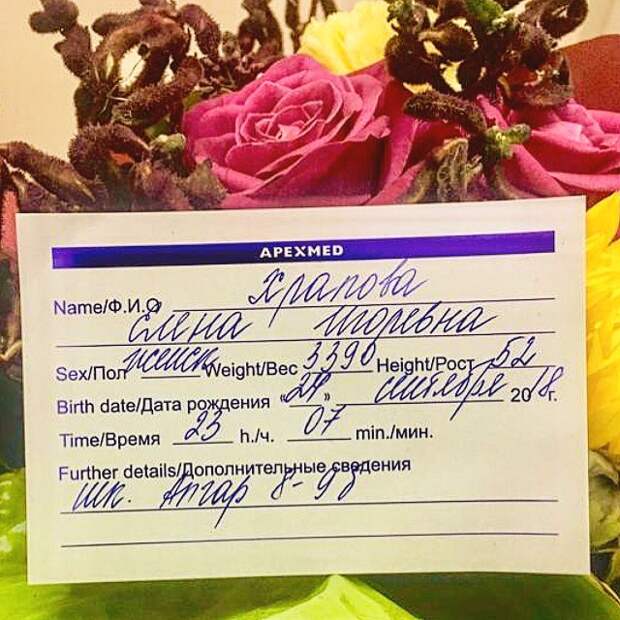 APEXMED
Name/Ф.И.О Храпова
Елена Игоревна
Sex/Пол женск Weight/Вес 3390 Height/Рост 52
Birth date/Дата рождения «24» сентября 2018г.
Time/Время 23 h./ч. 07 min./мин.
Further details/Дополнительные сведения
шк. Апгар 8-9б